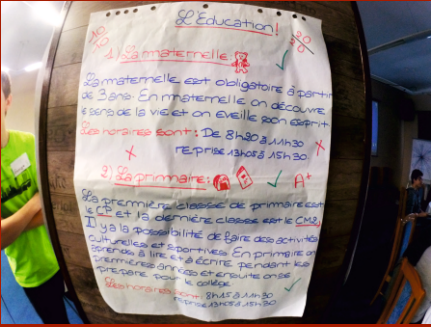 L'Education!
10/10
20/20
1) La maternelle:
La maternelle est obligatoire à partir
de 3 ans. En maternelle on découvre
le sens de la vie et on éveille son esprit
Les horaires sont: De 8h30 à 11h30
reprise 13h05 à 15h30
2) La primaire:
A+
La première classe de primaire est
le CP et la dernière classe est le CM2,
Il y a la possibilité de faire des activités
culturelles et sportives. En primaire on
apprends à lire et à écrire pendant les
premières années et ensuite on se
prépare pour le collège
Les horaires sont: 8h15 à 11h30
reprise 13h05 à 15h30